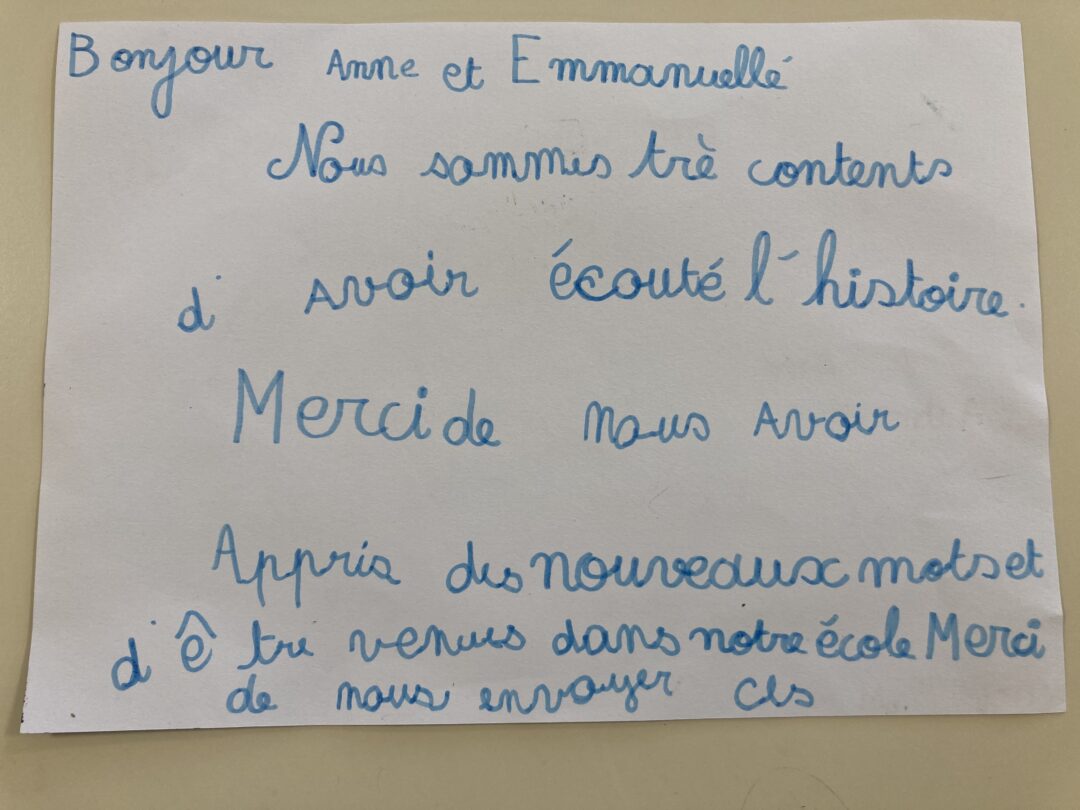 Bonjour Anne et Emmanuellé
Nous sommes trè contents
d' avoir écouté l'histoire.
Merci de nous avoir
Appris des nouveaux mots et
d'ê tre venues dans notre école Merci
de nous envoyer ces